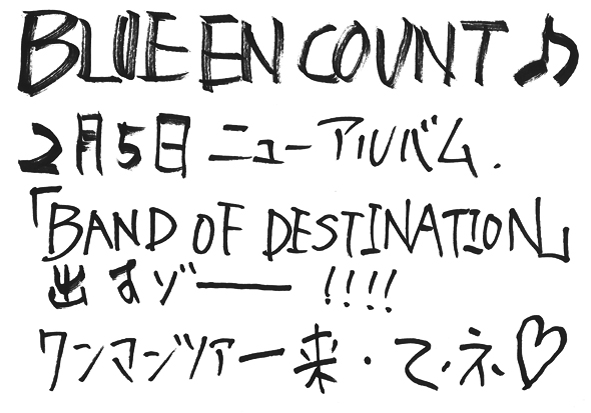 BLUE ENCOUNT♪
2月5日 ニューアルバム.
「BAND OF DESTINATION」
出すゾーー!!!!
ワンマンツアー来・て・ネ♡